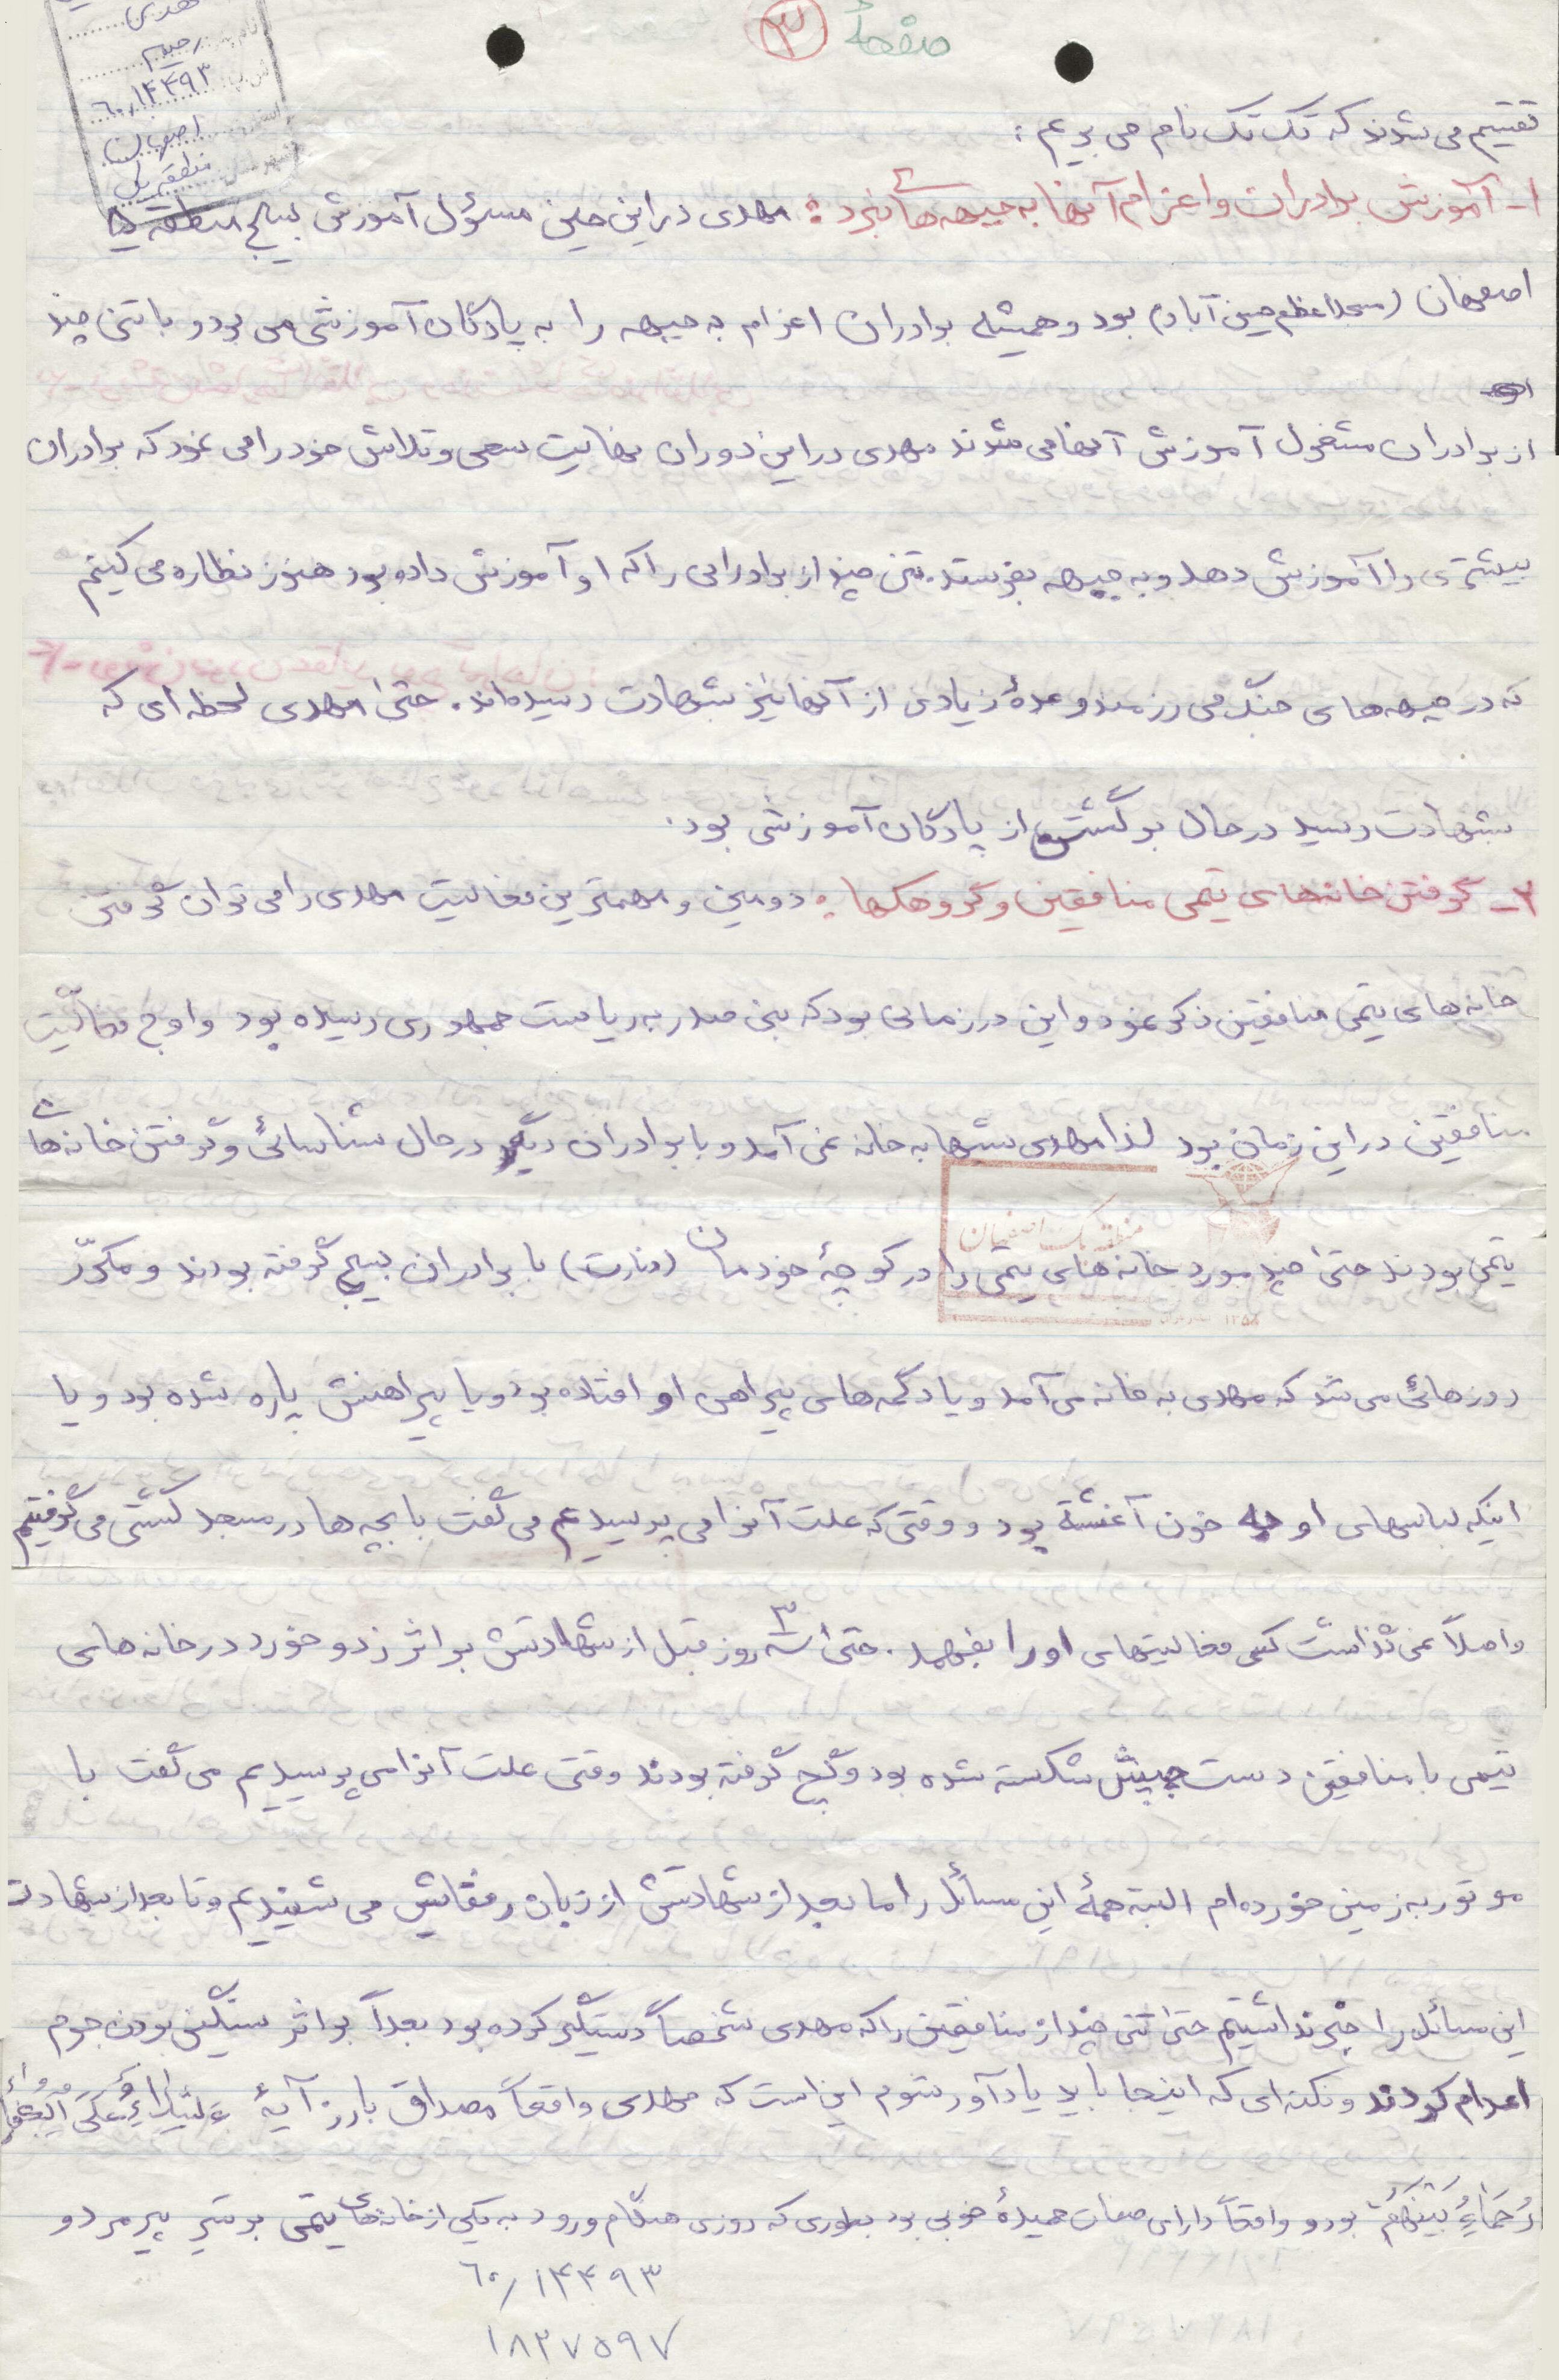 صفحهٔ ۳
مهدی
رحیم
۶۰/۱۴۴۹۳
اصفهان
منطقه یک
تقسیم می‌شدند که تک تک نام می بریم :
۱- آموزش برادران و اعزام آنها به جبهه هائی نبرد : مهدی در این حین مسؤل آموزش بسیج منطقه یک
اصفهان (مسجد اعظم حسین آباد) بود و همیشه برادران اعزام به جبهه را به پادگان آموزشی می برد و با تنی چند
از برادران مشغول آموزش آنها می شدند مهدی در این دوران نهایت سعی و تلاش خود را می نمود که برادران
بیشتری را آموزش دهد و به جبهه بفرستد. تنی چند از برادرانی را که او آموزش داده بود هنوز نظاره می کنیم
که در جبهه های جنگ می رزمند و عدهٔ زیادی از آنها نیز بشهادت رسیده‌اند. حتیٰ مهدی لحظه ای که
بشهادت رسید در حال برگشتن از پادگان آموزشی بود.
۲- گرفتن خانه‌های تیمی منافقین و گروهکها : دومین و مهمترین فعالیت مهدی را می توان گرفتن
خانه های تیمی منافقین ذکر نمود و این در زمانی بود که بنی صدر به ریاست جمهوری رسیده بود و اوج فعالیت
منافقین در این زمان بود لذا مهدی شبها به خانه نمی آمد و با برادران دیگر در حال شناسائی و گرفتن خانه های
تیمی بودند حتیٰ چند مورد خانه های تیمی را در کوچهٔ خودمان (منارت) با برادران بسیج گرفته بودند و مکرّر
منطقه یک اصفهان
۱۳۵۸
روزهائی می شد که مهدی به خانه می آمد و یا دگمه های پیراهن او افتاده بود و یا پیراهنش پاره شده بود و یا
اینکه لباسهای او به خون آغشته بود و وقتی که علت آنرا می پرسیدیم می گفت با بچه ها در مسجد کشتی می گرفتیم
و اصلاً نمی گذاشت کسی فعالیتهای او را بفهمد. حتیٰ ۳ روز قبل از شهادتش بر اثر زد و خورد در خانه های
تیمی با منافقین دست چپش شکسته شده بود و گچ گرفته بودند وقتی علت آنرا می پرسیدیم می گفت با
موتور به زمین خورده ام البته همهٔ این مسائل را ما بعد از شهادتش از زبان رفقایش می شنیدیم و تا بعد از شهادت
این مسائل را خبر نداشتیم حتیٰ تنی چند از منافقین را که مهدی شخصاً دستگیر کرده بود بعداً بر اثر سنگین بودن جرم
اعدام کردند و نکته ای که اینجا باید یادآور شوم این است که مهدی واقعاً مصداق بارز آیهٔ اَشِدّاءُ عَلَی الکُفّارِ
رُحَماءُ بَینَهُم بود و واقعاً دارای صفات حمیدهٔ خوبی بود بطوری که روزی هنگام ورود به یکی از خانه‌های تیمی بر سَرِ پیرمرد و
۶۰/۱۴۴۹۳
۱۸۲۷۵۹۷